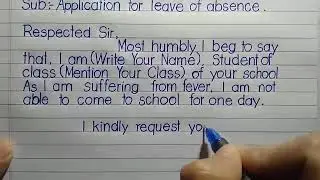 Sub:- Application for leave of absence.
Respected Sir,
Most humbly I beg to say
that, I am (Write Your Name), Student of
class (Mention Your Class) of your school
As I am suffering from fever, I am not
able to come to school for one day.
I kindly request yo